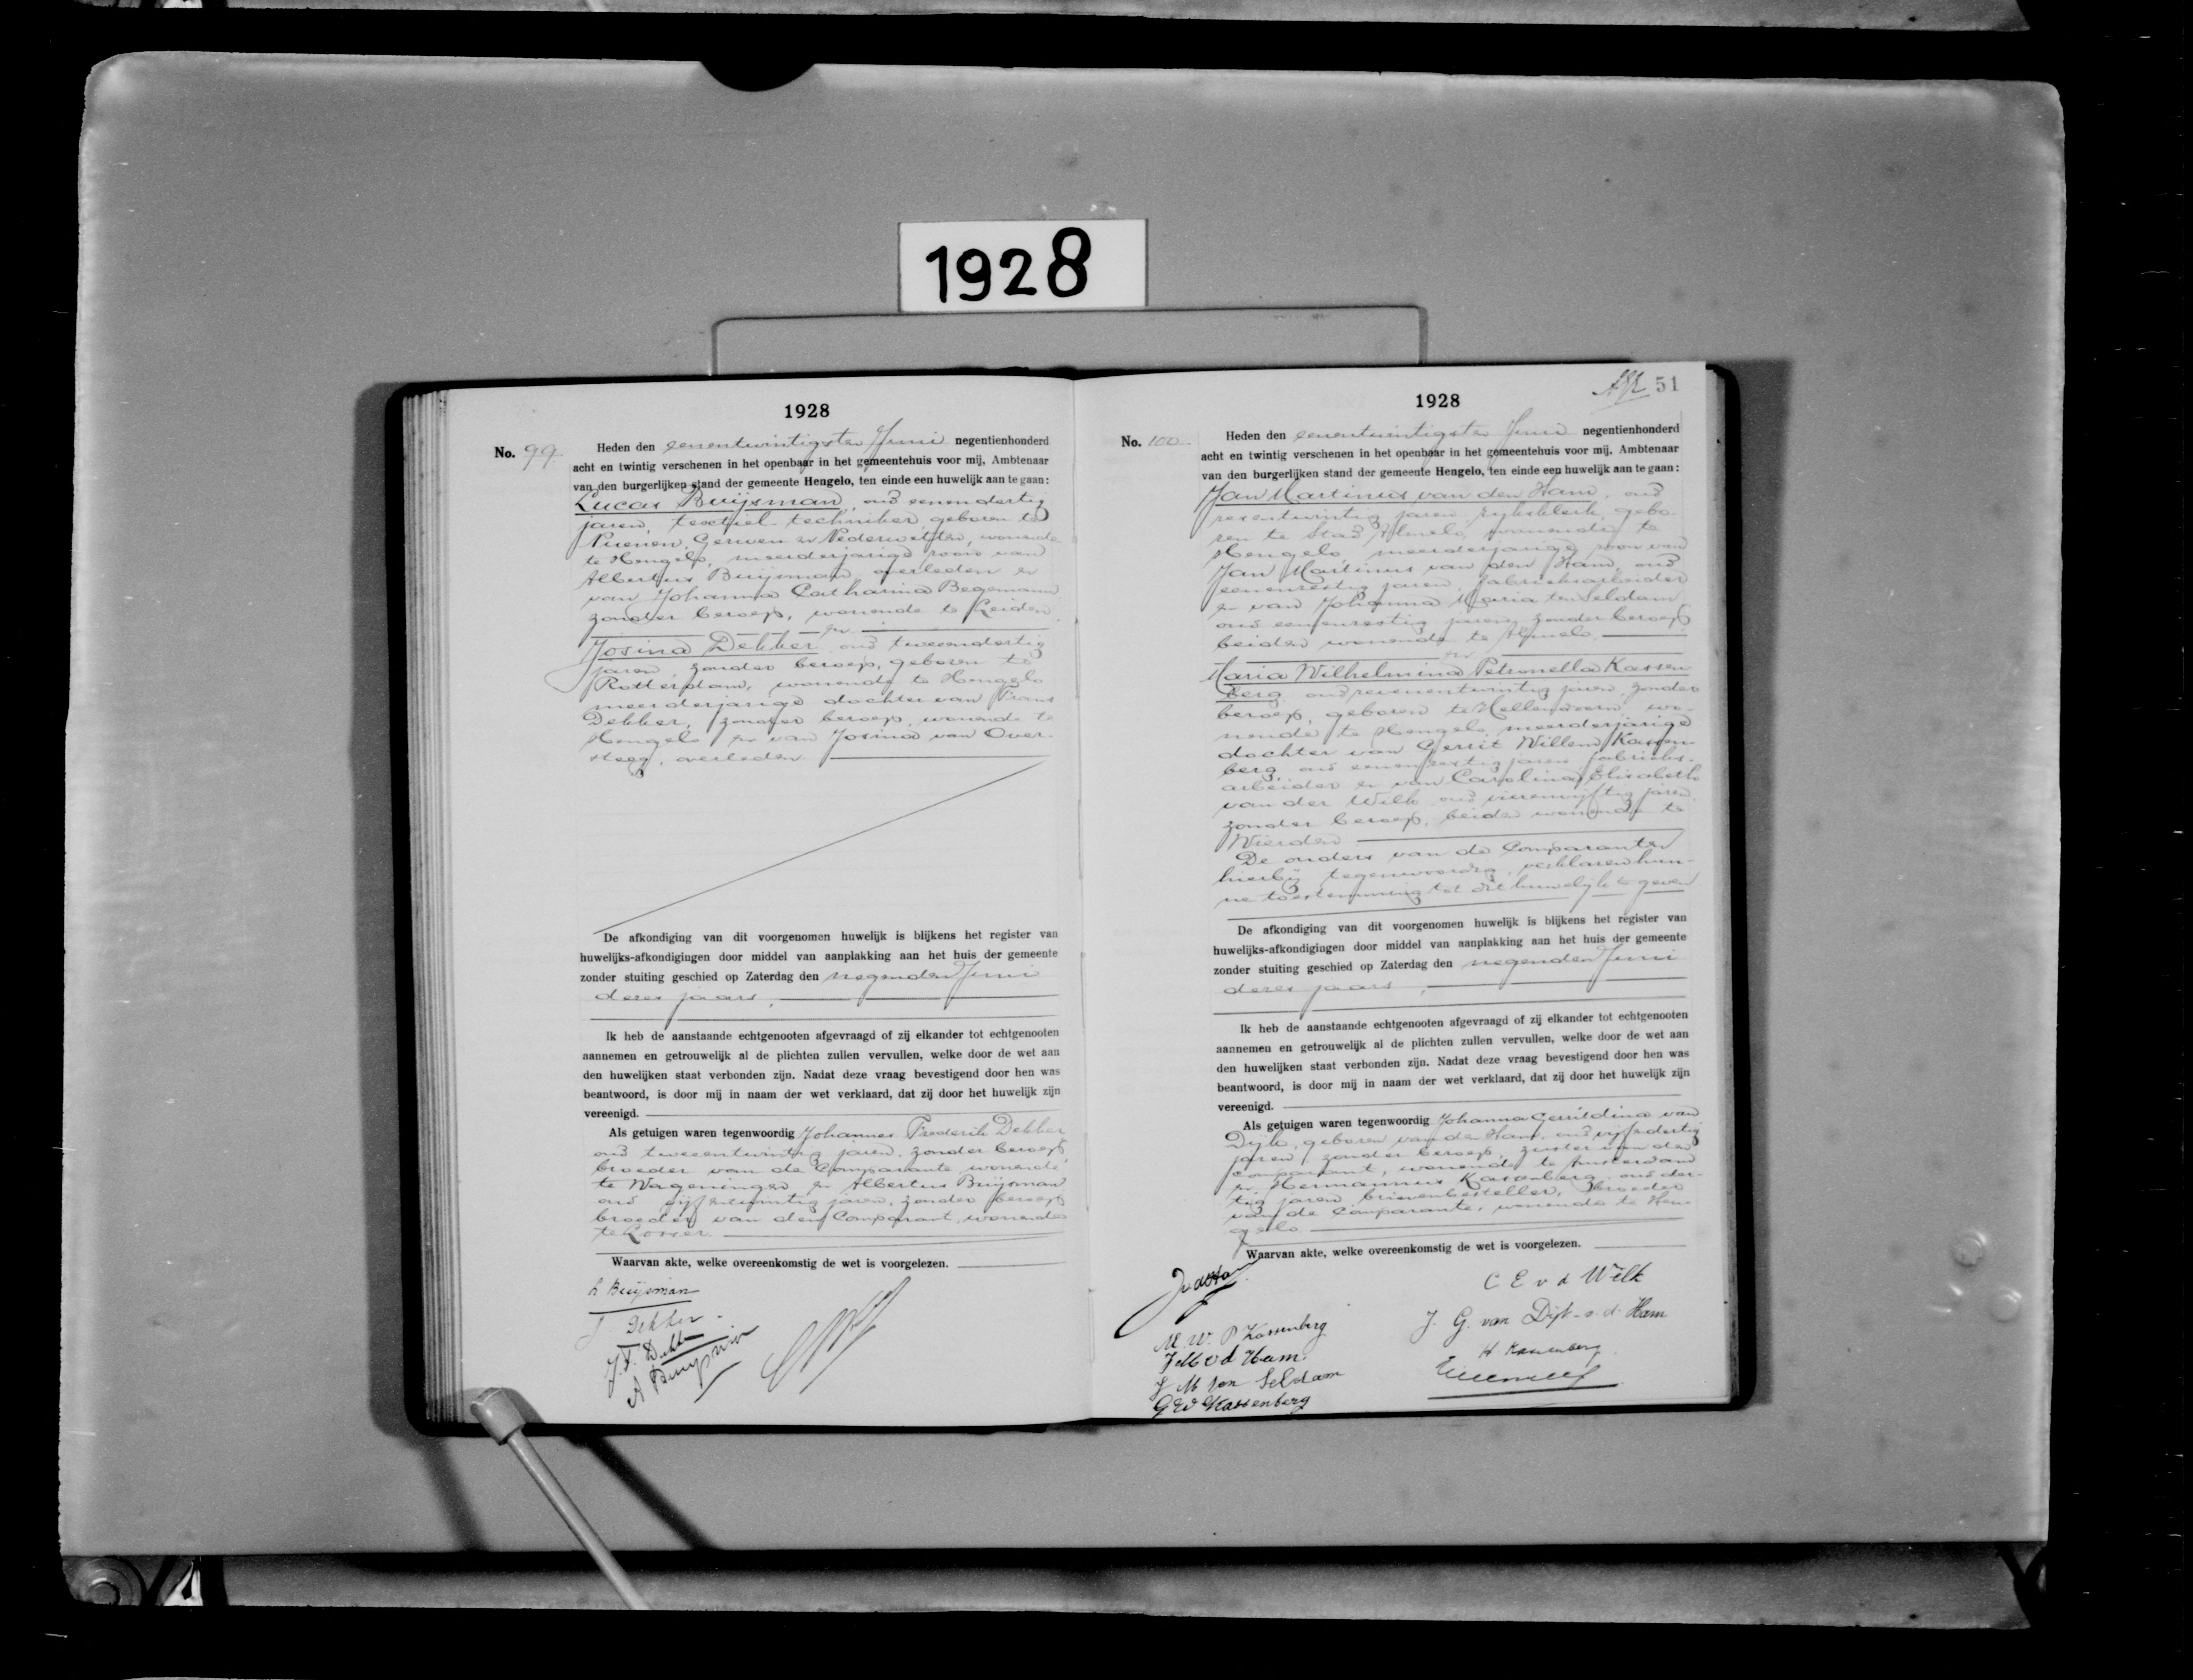 1928
1928
No. 99
Heden den eenentwintigsten Juni negentienhonderd
acht en twintig verschenen in het openbaar in het gemeentehuis voor mij, Ambtenaar
van den burgerlijken stand der gemeente Hengelo, ten einde een huwelijk aan te gaan:
Lucas Buijsman, oud eenendertig
jaren, textiel-techniker, geboren te
Nuenen, Gerwen en Nederwetten, wonende
te Hengelo, meerderjarige zoon van
Albertus Buijsman, overleden en
van Johanna Catharina Begemann
zonder beroep, wonende te Leiden
en
Josina Dekker oud tweeendertig
jaren, zonder beroep, geboren te
Rotterdam, wonende te Hengelo
meerderjarige dochter van Frans
Dekker, zonder beroep, wonende te
Hengelo en van Josina van Over-
steeg, overleden
De afkondiging van dit voorgenomen huwelijk is blijkens het register van
huwelijks-afkondigingen door middel van aanplakking aan het huis der gemeente
zonder stuiting geschied op Zaterdag den negenden Juni
dezes jaars,
Ik heb de aanstaande echtgenooten afgevraagd of zij elkander tot echtgenooten
aannemen en getrouwelijk al de plichten zullen vervullen, welke door de wet aan
den huwelijken staat verbonden zijn. Nadat deze vraag bevestigend door hen was
beantwoord, is door mij in naam der wet verklaard, dat zij door het huwelijk zijn
vereenigd.
Als getuigen waren tegenwoordig Johannes Frederik Dekker
oud tweeentwintig jaren, zonder beroep,
broeder van de Comparante, wonende
te Wageningen en Albertus Buijsman
oud vijfentwintig jaren, zonder beroep
broeder van den Comparant, wonende
te Losser
Waarvan akte, welke overeenkomstig de wet is voorgelezen.
L Buijsman
J Dekker
J. F. Dekker
A Buijsman
51
1928
No. 100
Heden den eenentwintigsten Juni negentienhonderd
acht en twintig verschenen in het openbaar in het gemeentehuis voor mij, Ambtenaar
van den burgerlijken stand der gemeente Hengelo, ten einde een huwelijk aan te gaan:
Jan Martinus van den Ham, oud
zesentwintig jaren, rijksklerk, gebo-
ren te Stad Almelo, wonende te
Hengelo, meerderjarige zoon van
Jan Martinus van den Ham, oud
eenenzestig jaren, fabrieksarbeider
en van Johanna Maria ten Seldam
oud eenenzestig jaren, zonder beroep
beiden wonende te Almelo
en
Maria Wilhelmina Petronella Kassen
berg oud zevenentwintig jaren, zonder
beroep, geboren te Hellendoorn, wo-
nende te Hengelo, meerderjarige
dochter van Gerrit Willem Kassen-
berg, oud eenenzestig jaren, fabrieks-
arbeider en van Carolina Elisabeth
van der Welk oud vierenvijftig jaren
zonder beroep, beiden wonende te
Wierden
De ouders van de Comparanten
hierbij tegenwoordig, verklaren hun-
ne toestemming tot dit huwelijk te geven
De afkondiging van dit voorgenomen huwelijk is blijkens het register van
huwelijks-afkondigingen door middel van aanplakking aan het huis der gemeente
zonder stuiting geschied op Zaterdag den negenden Juni
dezes jaars,
Ik heb de aanstaande echtgenooten afgevraagd of zij elkander tot echtgenooten
aannemen en getrouwelijk al de plichten zullen vervullen, welke door de wet aan
den huwelijken staat verbonden zijn. Nadat deze vraag bevestigend door hen was
beantwoord, is door mij in naam der wet verklaard, dat zij door het huwelijk zijn
vereenigd.
Als getuigen waren tegenwoordig Johanna Gerritdina van
Dijk, geboren van den Ham, oud vijfendertig
jaren, zonder beroep, zuster van den
comparant, wonende te Amsterdam
en Hermannus Kassenberg, oud der-
tig jaren, brievenbesteller, broeder
van de Comparante, wonende te Hen-
gelo
Waarvan akte, welke overeenkomstig de wet is voorgelezen.
C E v d Welk
J. G. van Dijk-v. d. Ham
M. W. P Kassenberg
J M v d Ham
H Kassenberg
J M ten Seldam
G W Kassenberg